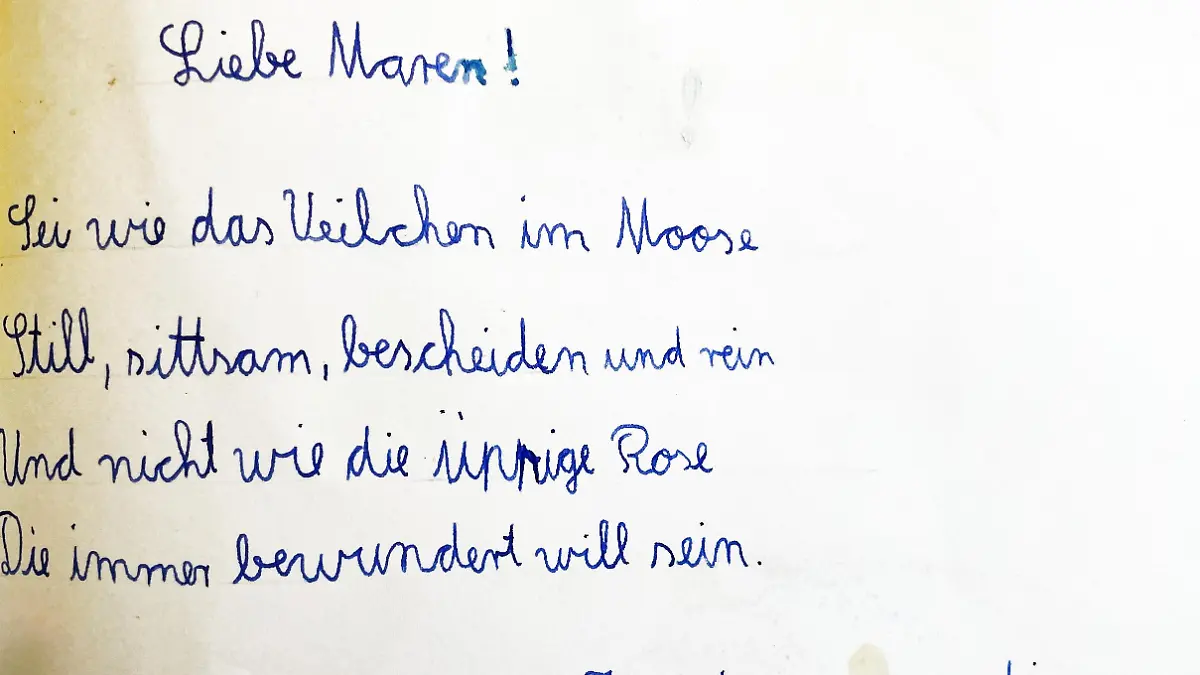 Liebe Maren!
Sei wie das Veilchen im Moose
Still, sittsam, bescheiden und rein
Und nicht wie die üppige Rose
Die immer bewundert will sein.